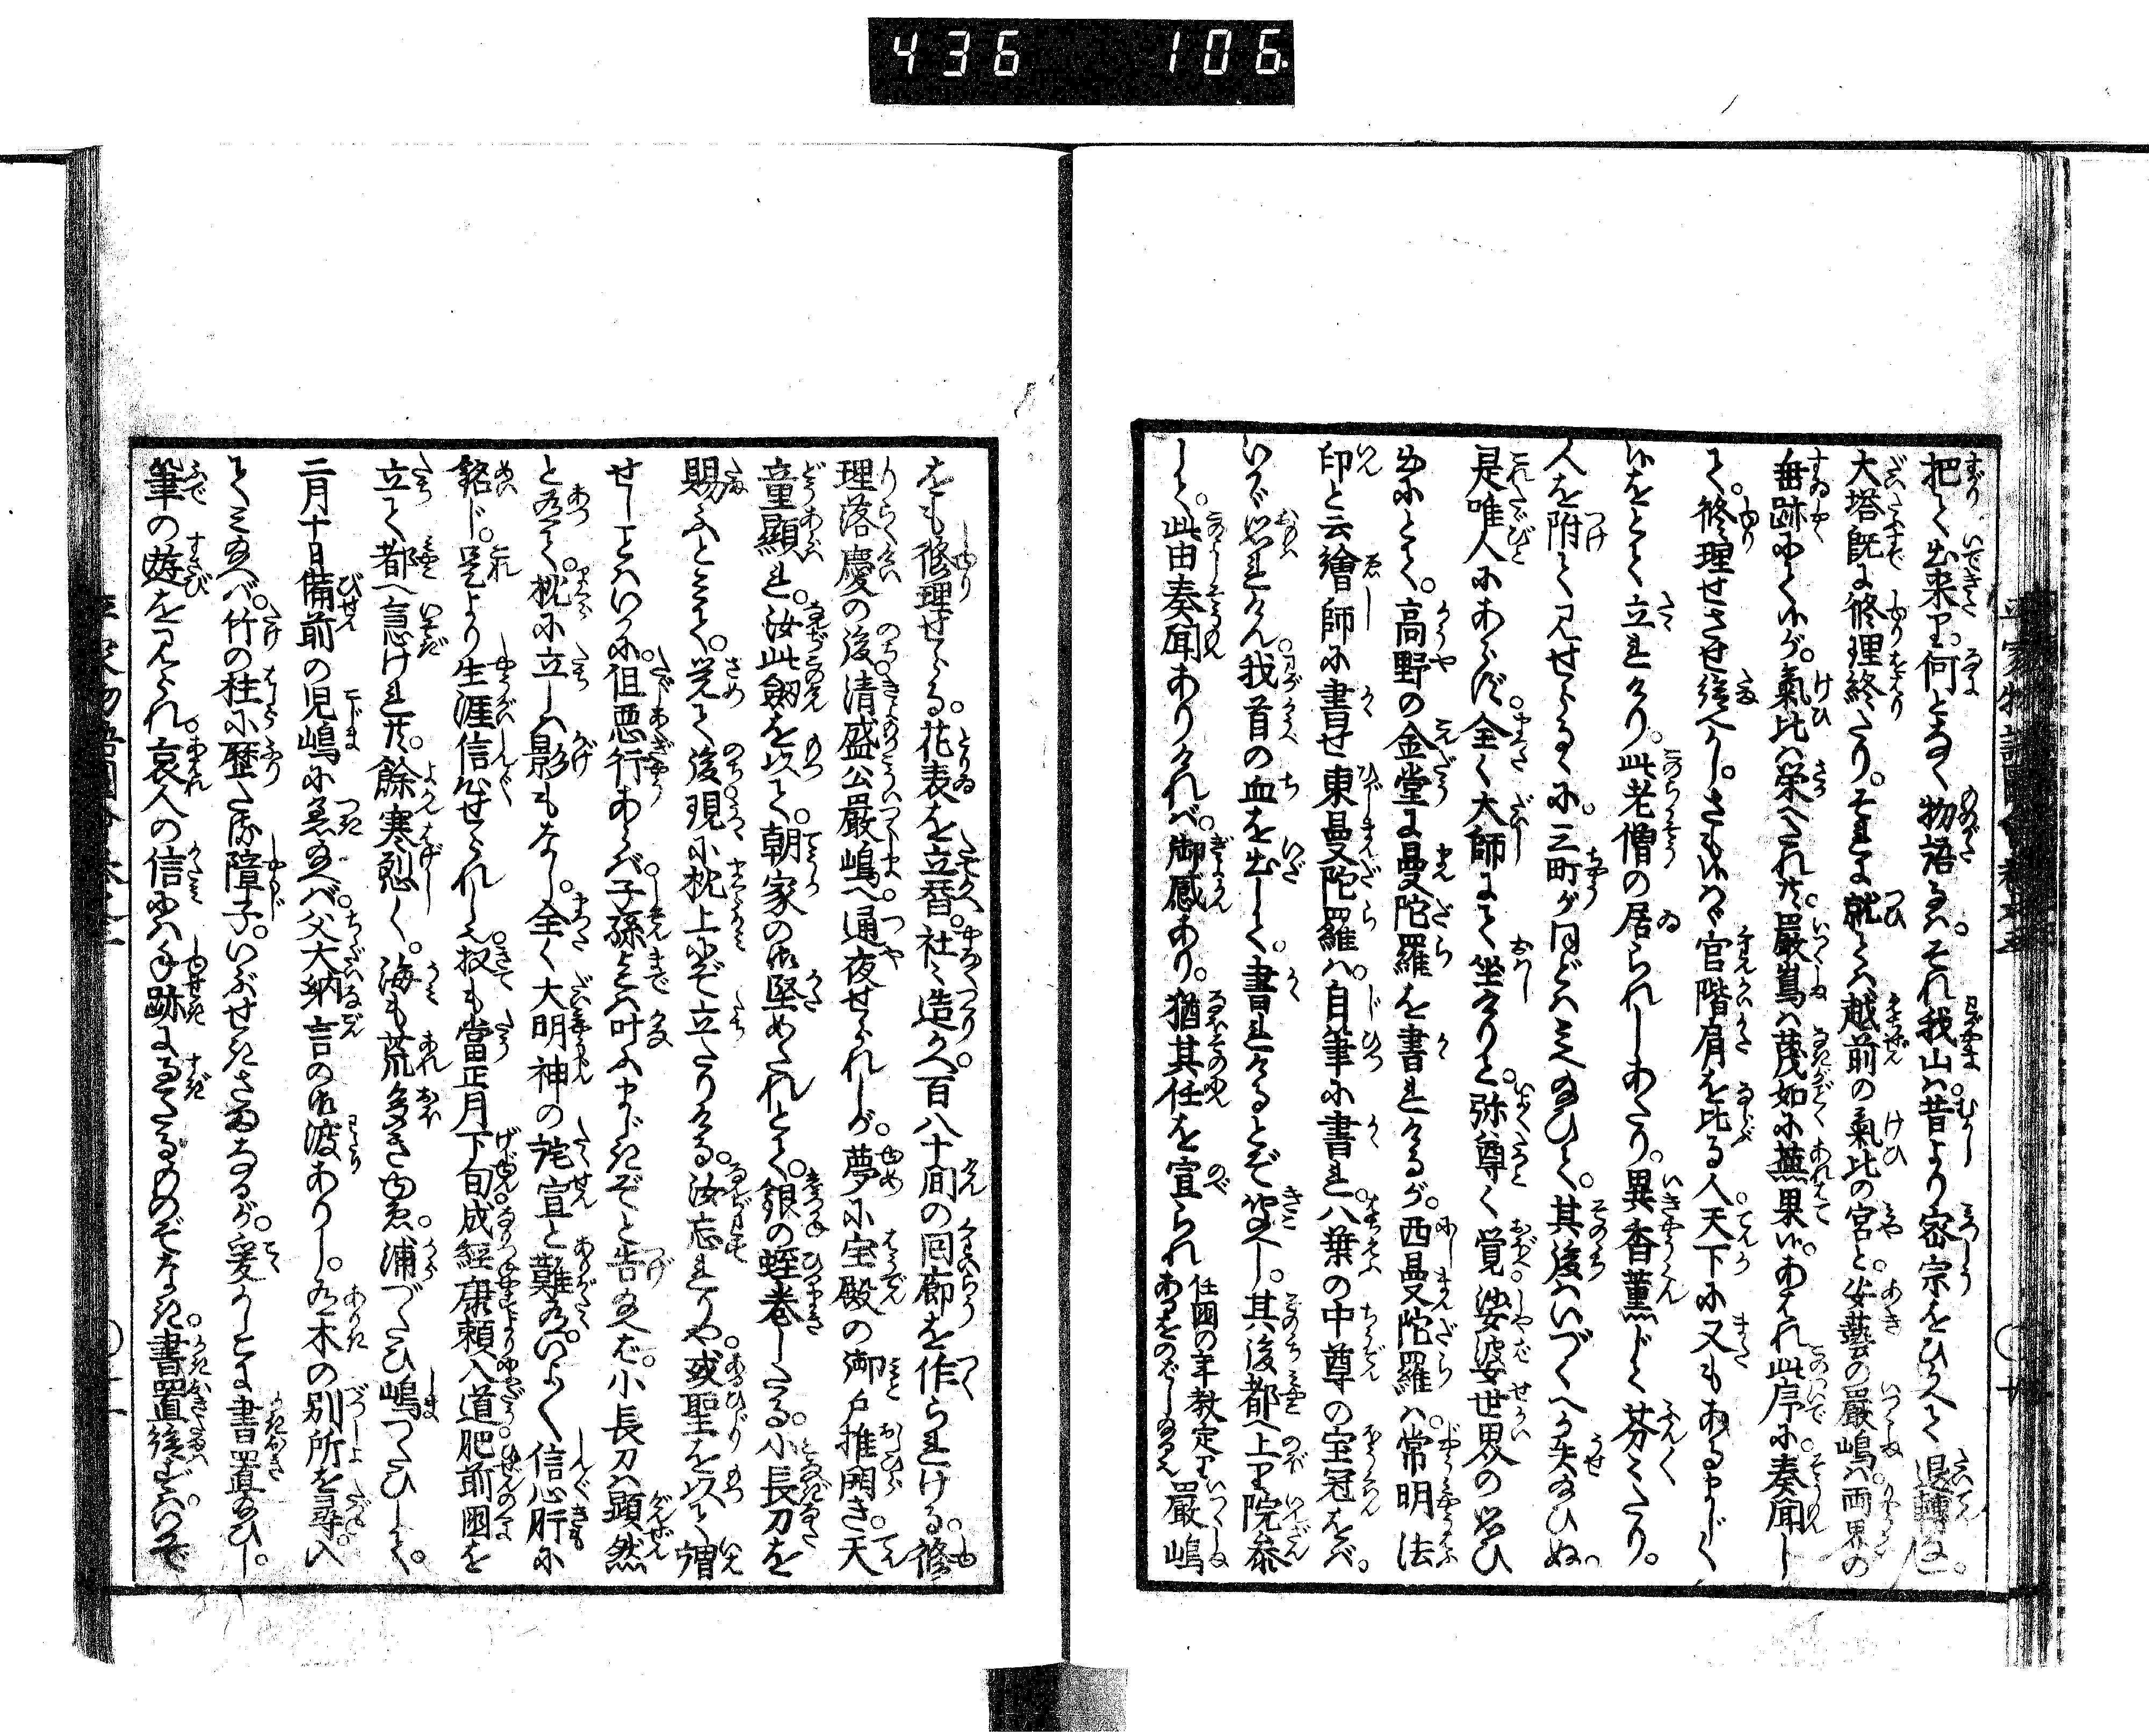 436 106
把て出来り。何となく物語るは。それ我山は。昔より密宗をひかへて退轉なし。
大塔既に修理終たり。それに就ては越前の氣比の宮と。安藝の嚴嶋は両界の
垂跡にて候が。氣比は栄へたれ共。嚴嶌は茂如に蕪果候。あはれ此序に奏聞し
て。修理せさせ給へかし。さも候はゞ官階肩を比る人。天下に又もあるまじく
候とて立れけり。此老僧の居られしあたり。異香薫じて芬々たり。
人を附て見せらるゝに。三町が間どは見え給ひて。其後はいづくへか失給ひぬ。
是唯人にあらず。全く大師にて坐けりと。弥尊く覚。娑婆世界の思ひ
出にとて。高野の金堂に曼陀羅を書れけるが。西曼陀羅は。常明法
印と云繪師に書せ東曼陀羅は。自筆に書れ。八葉の中尊の宝冠をば。
いかゞ思れけん。我首の血を出して。書れけるとぞ聞えし。其後都へ上り院参
して。此由奏聞ありければ。御感あり。猶其任を宣られ 任國の年数定り あるをのべしなり 嚴嶋
をも修理せらる。花表を立替。社々造かへ。百八十間の囘廊を作られける。修
理落慶の後。清盛公嚴嶋へ通夜せられしが。夢に宝殿の御戸推開き。天
童顯れ。汝此劔を以て。朝家の御堅めたれとて。銀の蛭巻したる。小長刀を
賜ふとみて。覚て後。現に枕上にぞ立たりける。汝忘れりや。或聖を以て謂
せしことはいかに。但悪行あらば。子孫までは叶ふまじきぞと告給へば。小長刀は顕然
と有て。枕に立しは影もなし。全く大明神の詫宣と難有。いよ〳〵信心肝に
銘じ。是より生涯信心せられしなり。扨も當正月下旬。成經康頼入道。肥前國を
立て都へ急けれ共。餘寒烈く。海も荒多き故。浦づたひ嶋づたひして。
二月十日備前の児嶋に着給へば。父大納言の御渡ありし。有木の別所を尋。入
てみ給へば。竹の柱に歴たる障子。いぶせきさまなるが。爰かしこに書置給ひし。
筆の遊を見られ。哀人の信には手跡にすぎたるものぞなき。書置給はずはいかで